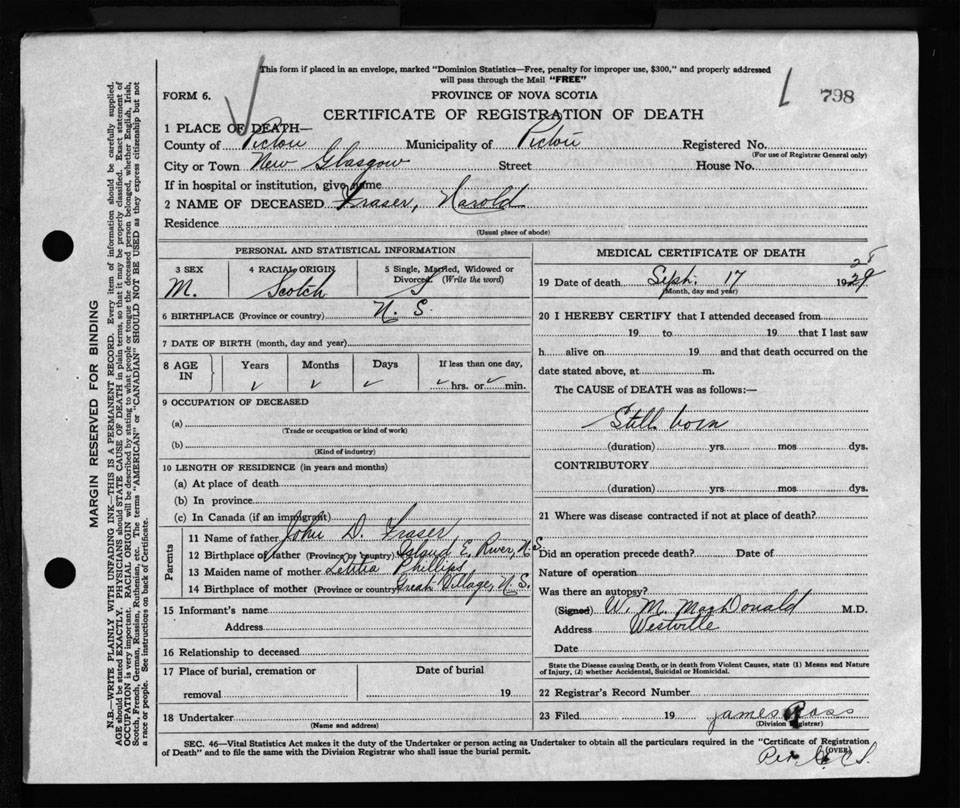 This form if placed in an envelope, marked "Dominion Statistics—Free, penalty for improper use, $300," and properly addressed
will pass through the Mail "FREE"
FORM 6.
PROVINCE OF NOVA SCOTIA
798
CERTIFICATE OF REGISTRATION OF DEATH
1 PLACE OF DEATH—
County of Pictou Municipality of Pictou Registered No.
(For use of Registrar General only)
City or Town New Glasgow Street House No.
If in hospital or institution, give name
2 NAME OF DECEASED Fraser, Harold
Residence
(Usual place of abode)
PERSONAL AND STATISTICAL INFORMATION
3 SEX 4 RACIAL ORIGIN 5 Single, Married, Widowed or
Divorced (Write the word)
M. Scotch S
6 BIRTHPLACE (Province or country) N. S.
7 DATE OF BIRTH (month, day and year)
8 AGE IN Years Months Days If less than one day,
hrs. or min.
9 OCCUPATION OF DECEASED
(a)
(Trade or occupation or kind of work)
(b)
(Kind of industry)
10 LENGTH OF RESIDENCE (in years and months)
(a) At place of death
(b) In province
(c) In Canada (if an immigrant)
Parents
11 Name of father John D. Fraser
12 Birthplace of father (Province or country) Island E. River, N.S
13 Maiden name of mother Letitia Phillips
14 Birthplace of mother (Province or country) Great Village, N.S.
15 Informant's name
Address
16 Relationship to deceased
17 Place of burial, cremation or Date of burial
removal 19
18 Undertaker
(Name and address)
MEDICAL CERTIFICATE OF DEATH
28
19 Date of death Sept. 17 1929
(Month, day and year)
20 I HEREBY CERTIFY that I attended deceased from
19 to 19 that I last saw
h alive on 19 and that death occurred on the
date stated above, at m.
The CAUSE of DEATH was as follows:—
Still born
(duration) yrs mos dys.
CONTRIBUTORY
(duration) yrs. mos dys.
21 Where was disease contracted if not at place of death?
Did an operation precede death? Date of
Nature of operation
Was there an autopsy?
(Signed) W. M. MacDonald M.D.
Address Westville
Date
State the Disease causing Death, or in death from Violent Causes, state (1) Means and Nature
of Injury, (2) whether Accidental, Suicidal or Homicidal.
22 Registrar's Record Number
23 Filed 19 James Ross
(Division Registrar)
SEC. 46—Vital Statistics Act makes it the duty of the Undertaker or person acting as Undertaker to obtain all the particulars required in the "Certificate of Registration
of Death" and to file the same with the Division Registrar who shall issue the burial permit. (OVER)
Per
MARGIN RESERVED FOR BINDING
N.B.—WRITE PLAINLY WITH UNFADING INK—THIS IS A PERMANENT RECORD. Every item of information should be carefully supplied.
AGE should be stated EXACTLY. PHYSICIANS should STATE CAUSE OF DEATH in plain terms, so that it may be properly classified. Exact statement of
OCCUPATION is very important. RACIAL ORIGIN will be described by stating to what people or tongue the deceased person belonged, whether English, Irish,
Scotch, French, German, Russian, Ruthenian, etc. The terms "AMERICAN" or "CANADIAN" SHOULD NOT BE USED as they express citizenship but not
a race or people. See instructions on back of Certificate.